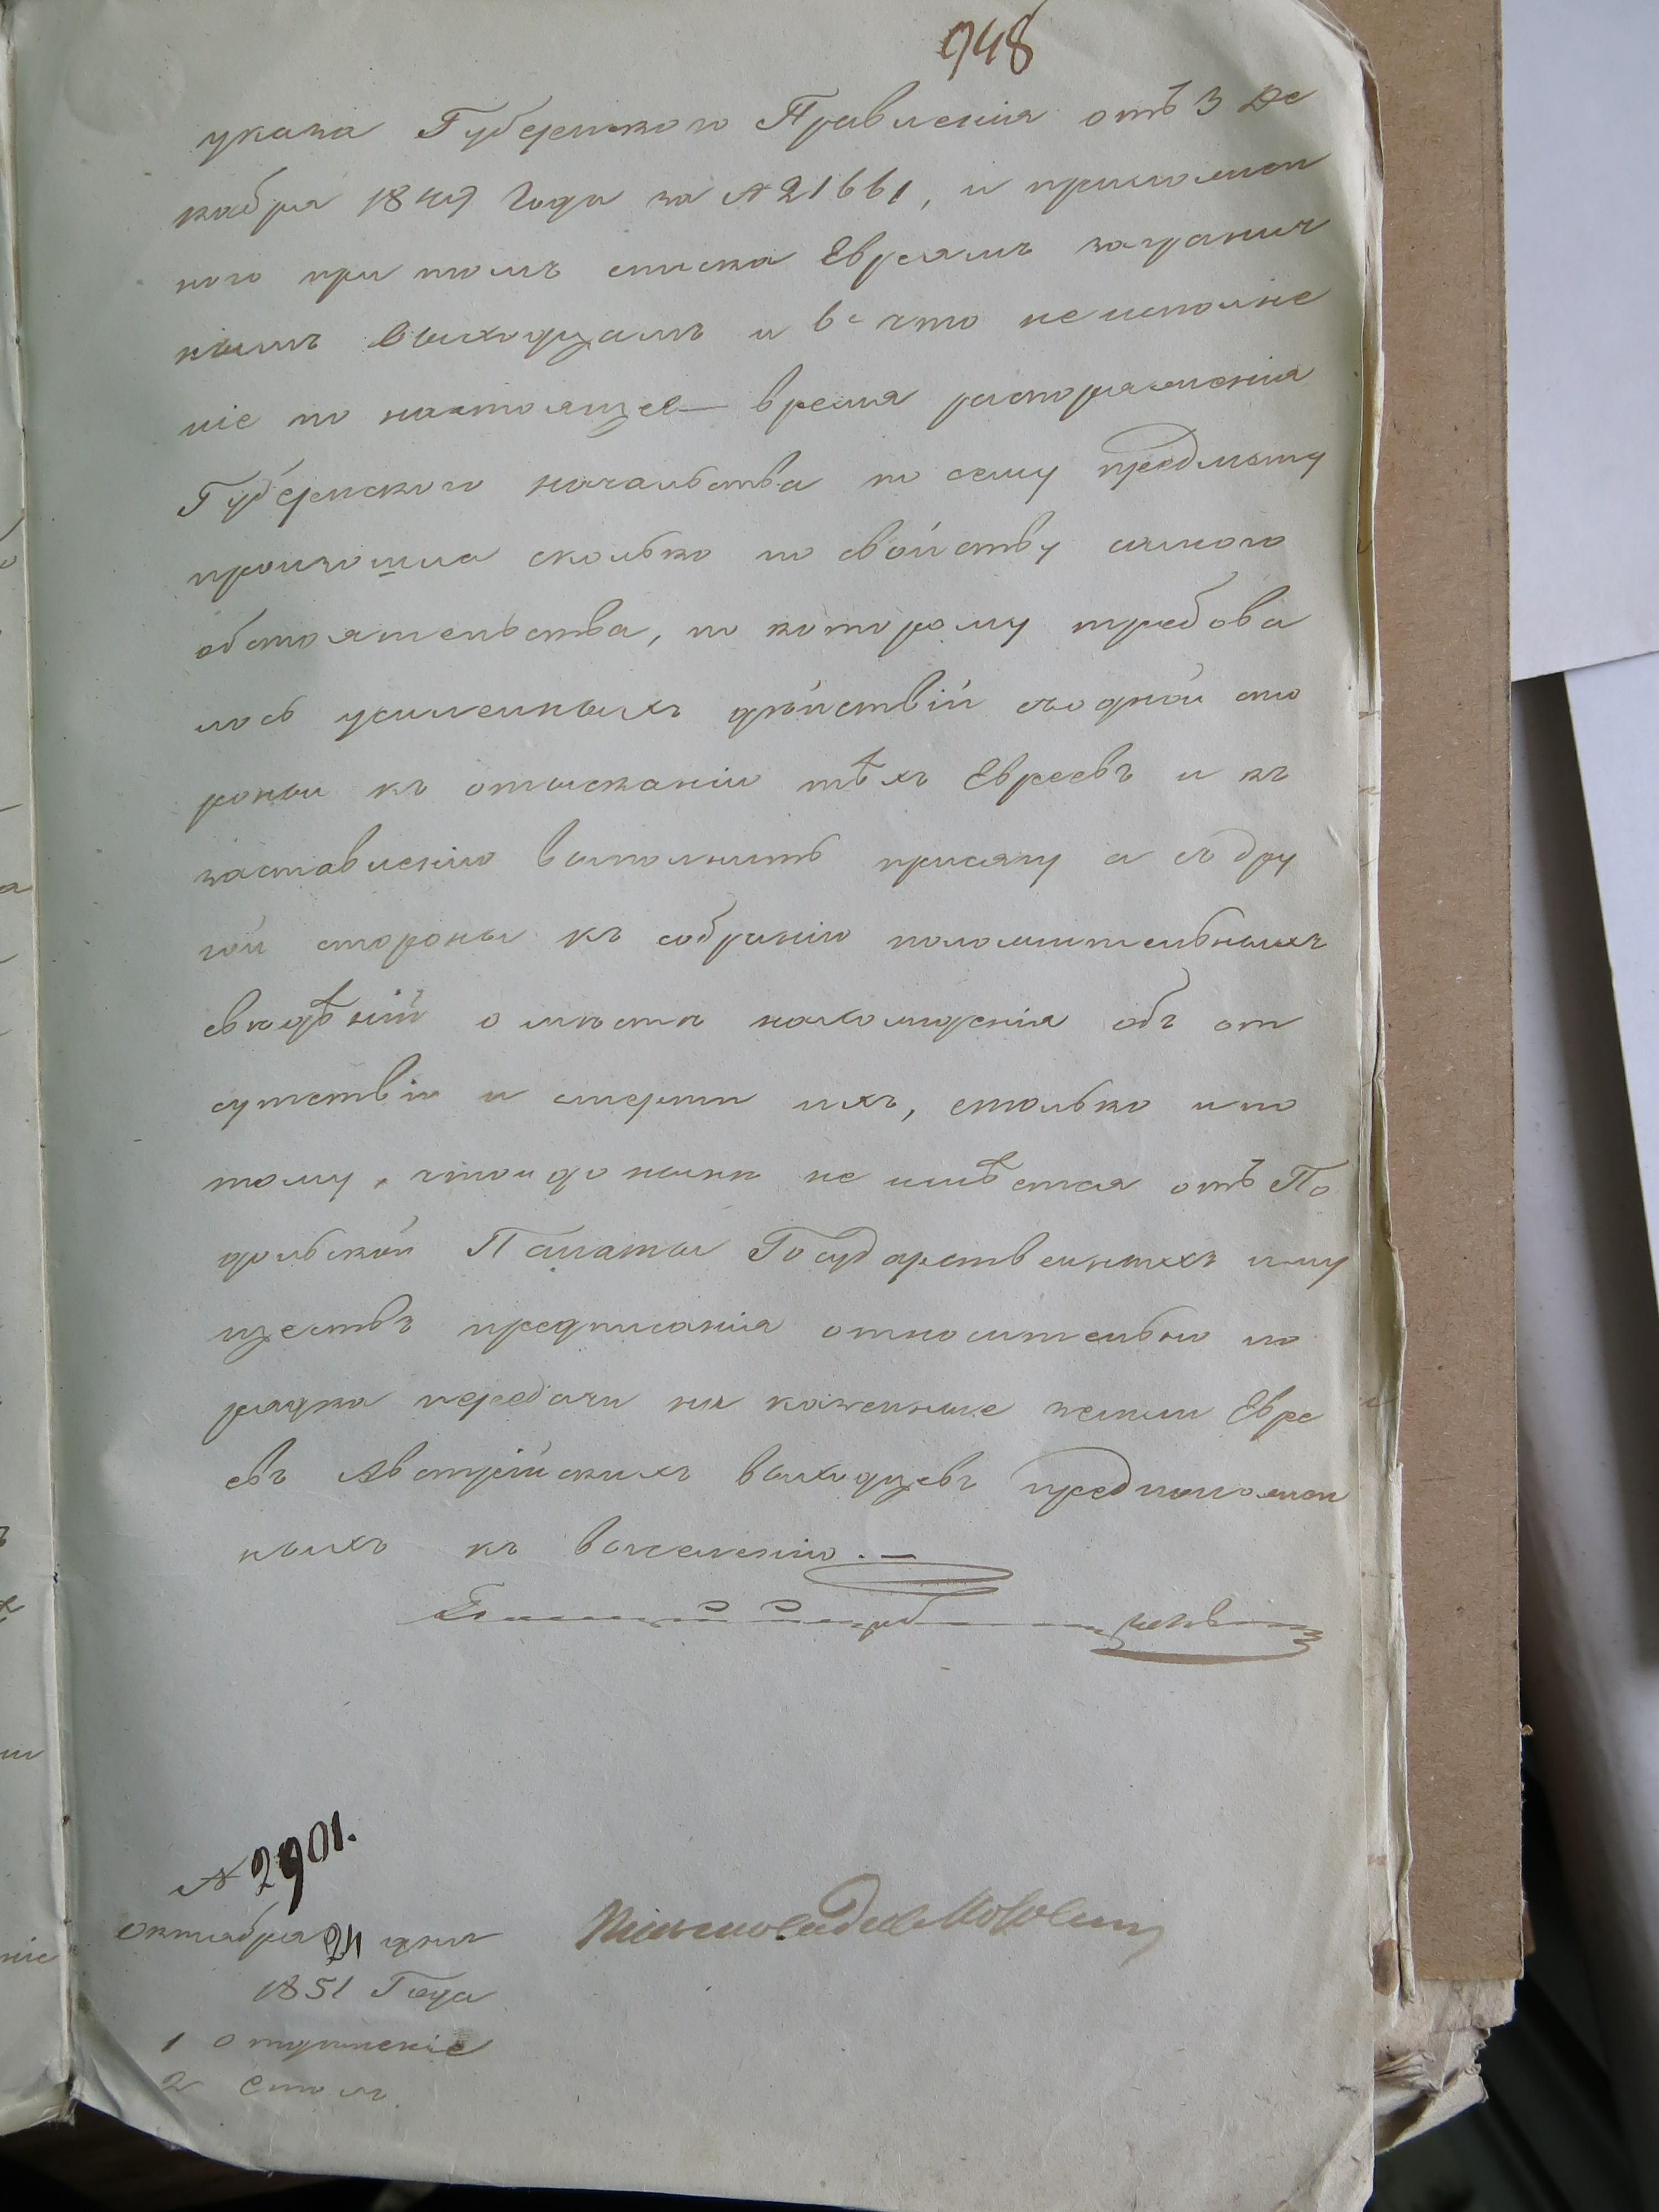 948
указа Губернского Правленія отъ 3 Де
кабря 1849 Года за № 21661, и приложен
ного при томъ списка Евреямъ загранич
нымъ выходцамъ и что неисполне
ніе по настоящее время распоряженія
Губернского начальства по сему предмѣту
произошла сколько по свойству самого
обстоятельства, по которому требова
лось усиленныхъ дѣйствій съ одной сто
роны къ отысканію тѣхъ Евреевъ и къ
заставленію выполнить присягу а съ дру
гой стороны къ собранію положительныхъ
свѣдѣній о мѣстѣ нахожденія объ от
сутствіи и смерти ихъ, столько и по
тому, что и до нынѣ не имѣется отъ По
дольской Палаты Государственныхъ иму
ществъ предписанія относительно по
рядка передачи на казенные земли Евре
евъ Австрійскихъ выходцевъ предположен
ныхъ къ выселенію. —
№ 2901.
Октября дня
1851 Года
1 Отдѣленіе
2 Столъ